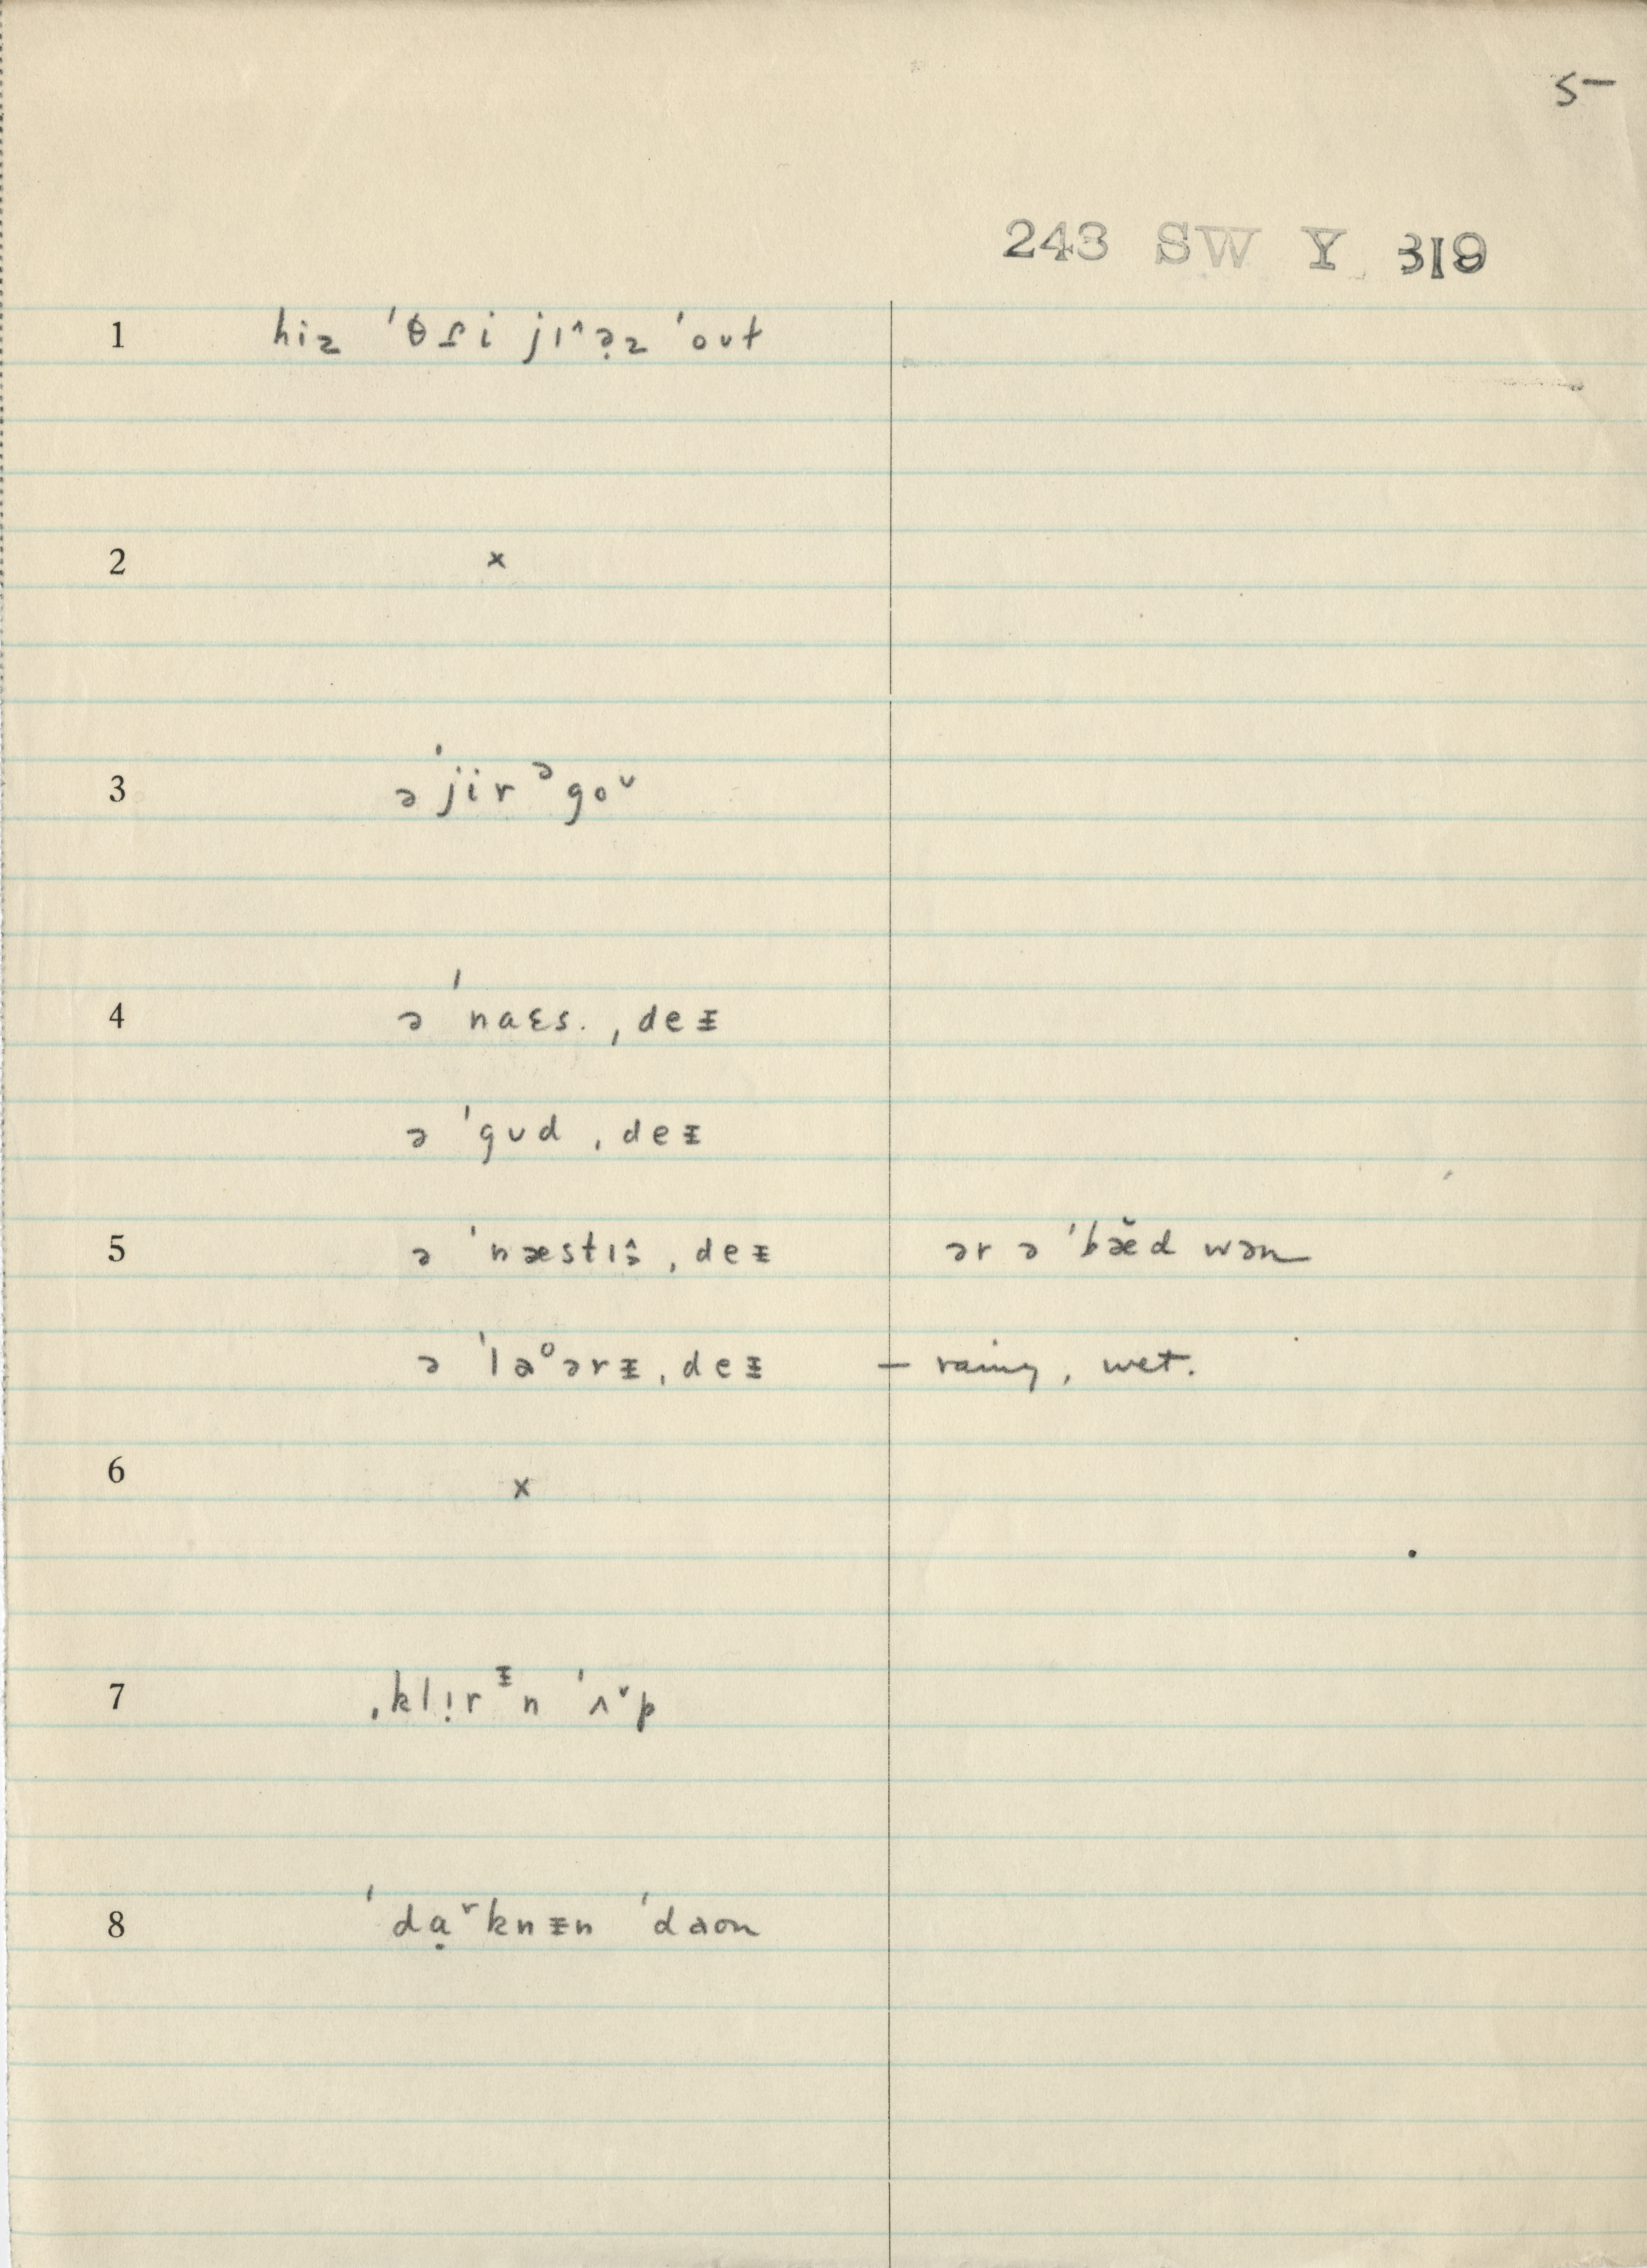 5
243 SW Y 319
1 hiz ˈθɾi jɪ^ə̣z ˈoʊt
2 x
3 əˈjirᵊgoᵛ
4 ə ˈnaɛs. ˌdeᵻ
ə ˈgʊd ˌdeᵻ
5 ə ˈnæstɪ^ ˌdeᵻ ər ə ˈbæ̆d wən
ə ˈlaᵒərᵻ ˌdeᵻ – rainy, wet.
6 x
7 ˌklị r ᵻn ˈʌ˅p
8 ˈdạʳknᵻn ˈdaon